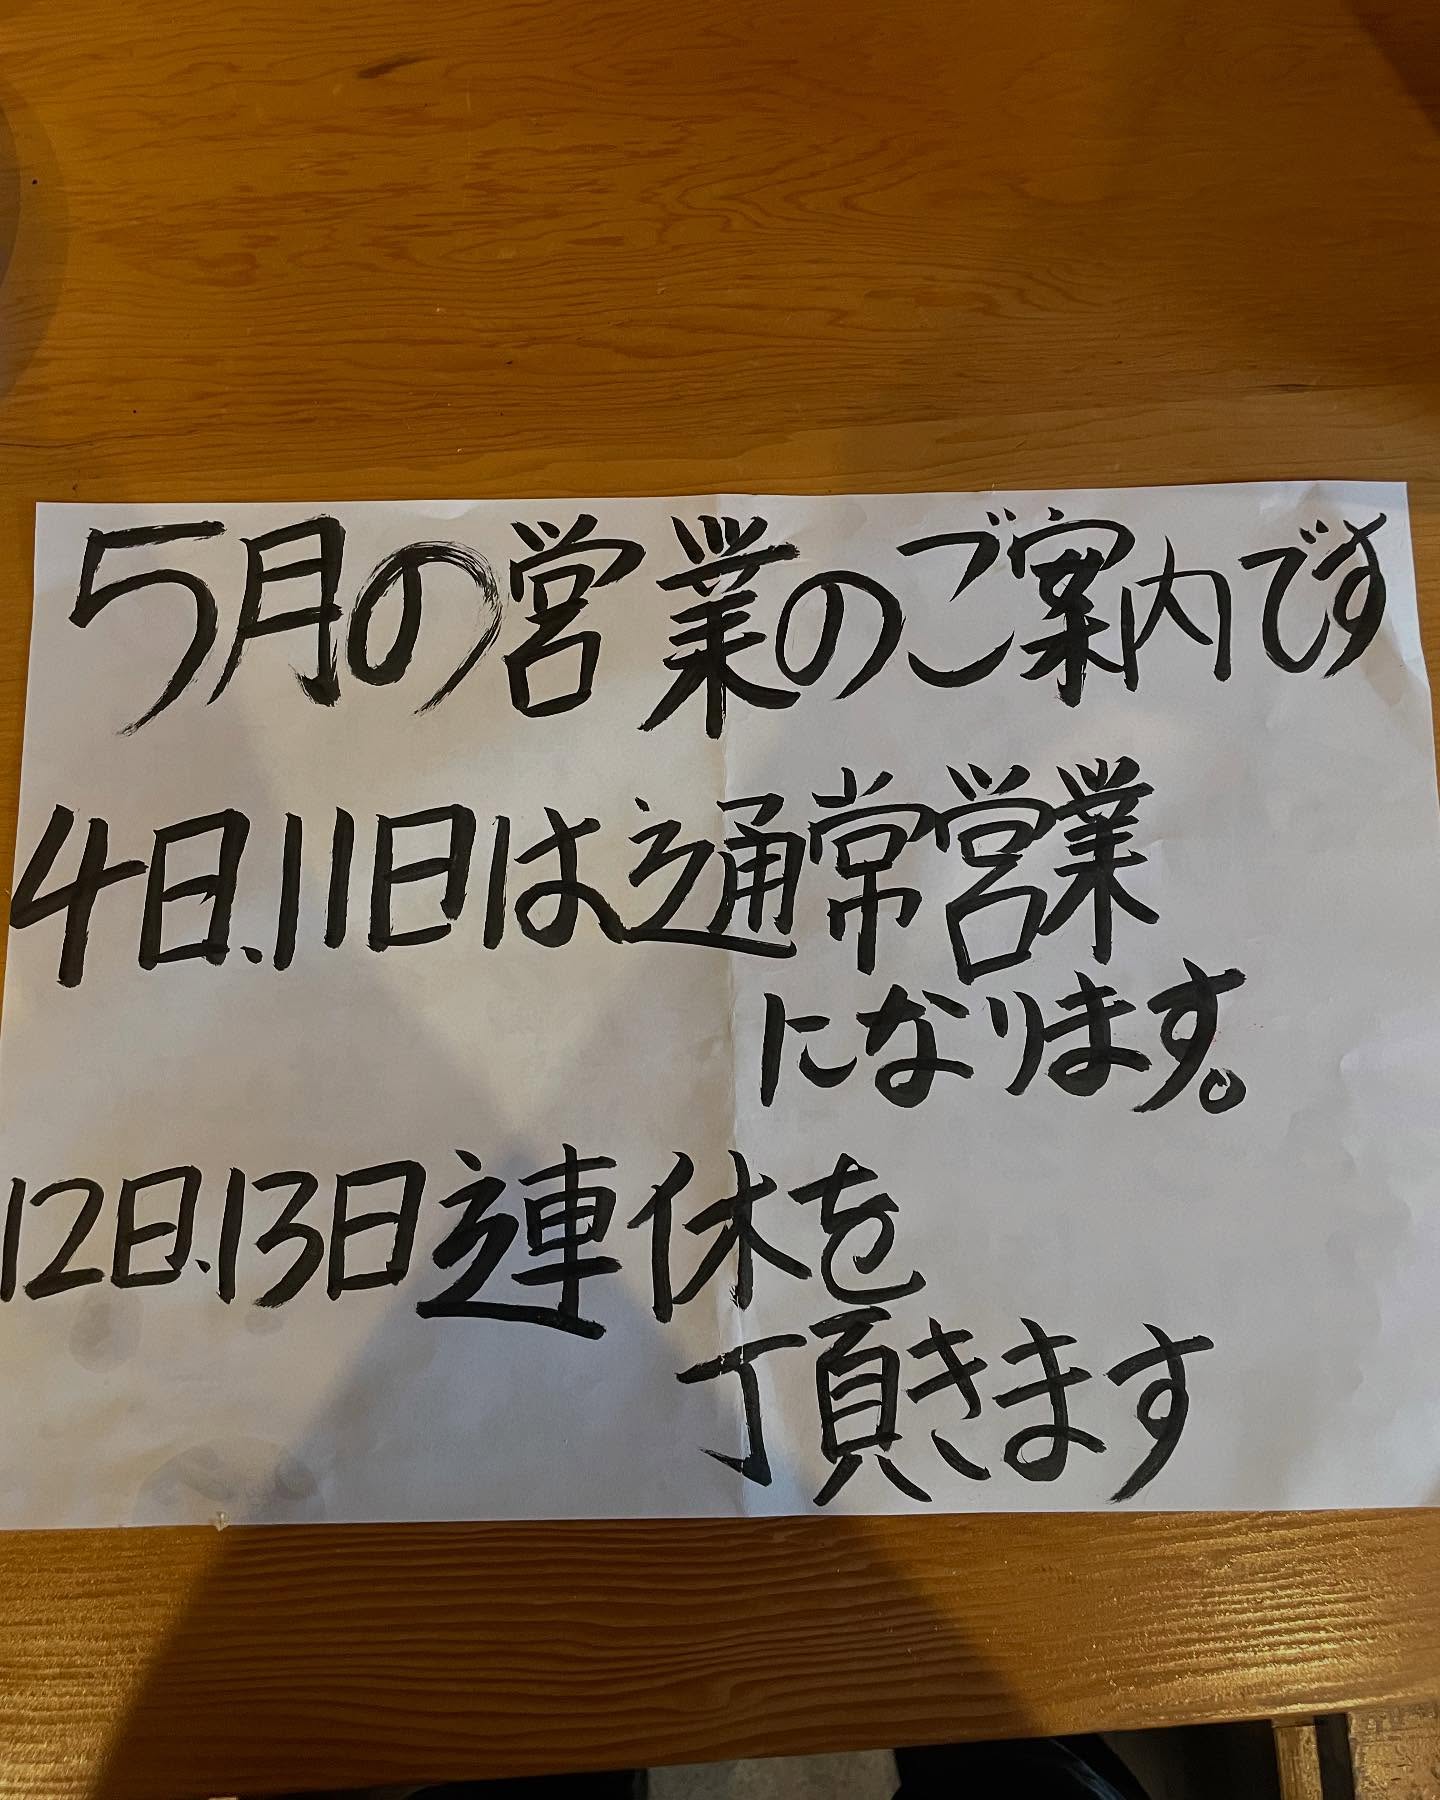 5月の営業のご案内です
4日、11日は通常営業
になります。
12日、13日連休を
頂きます